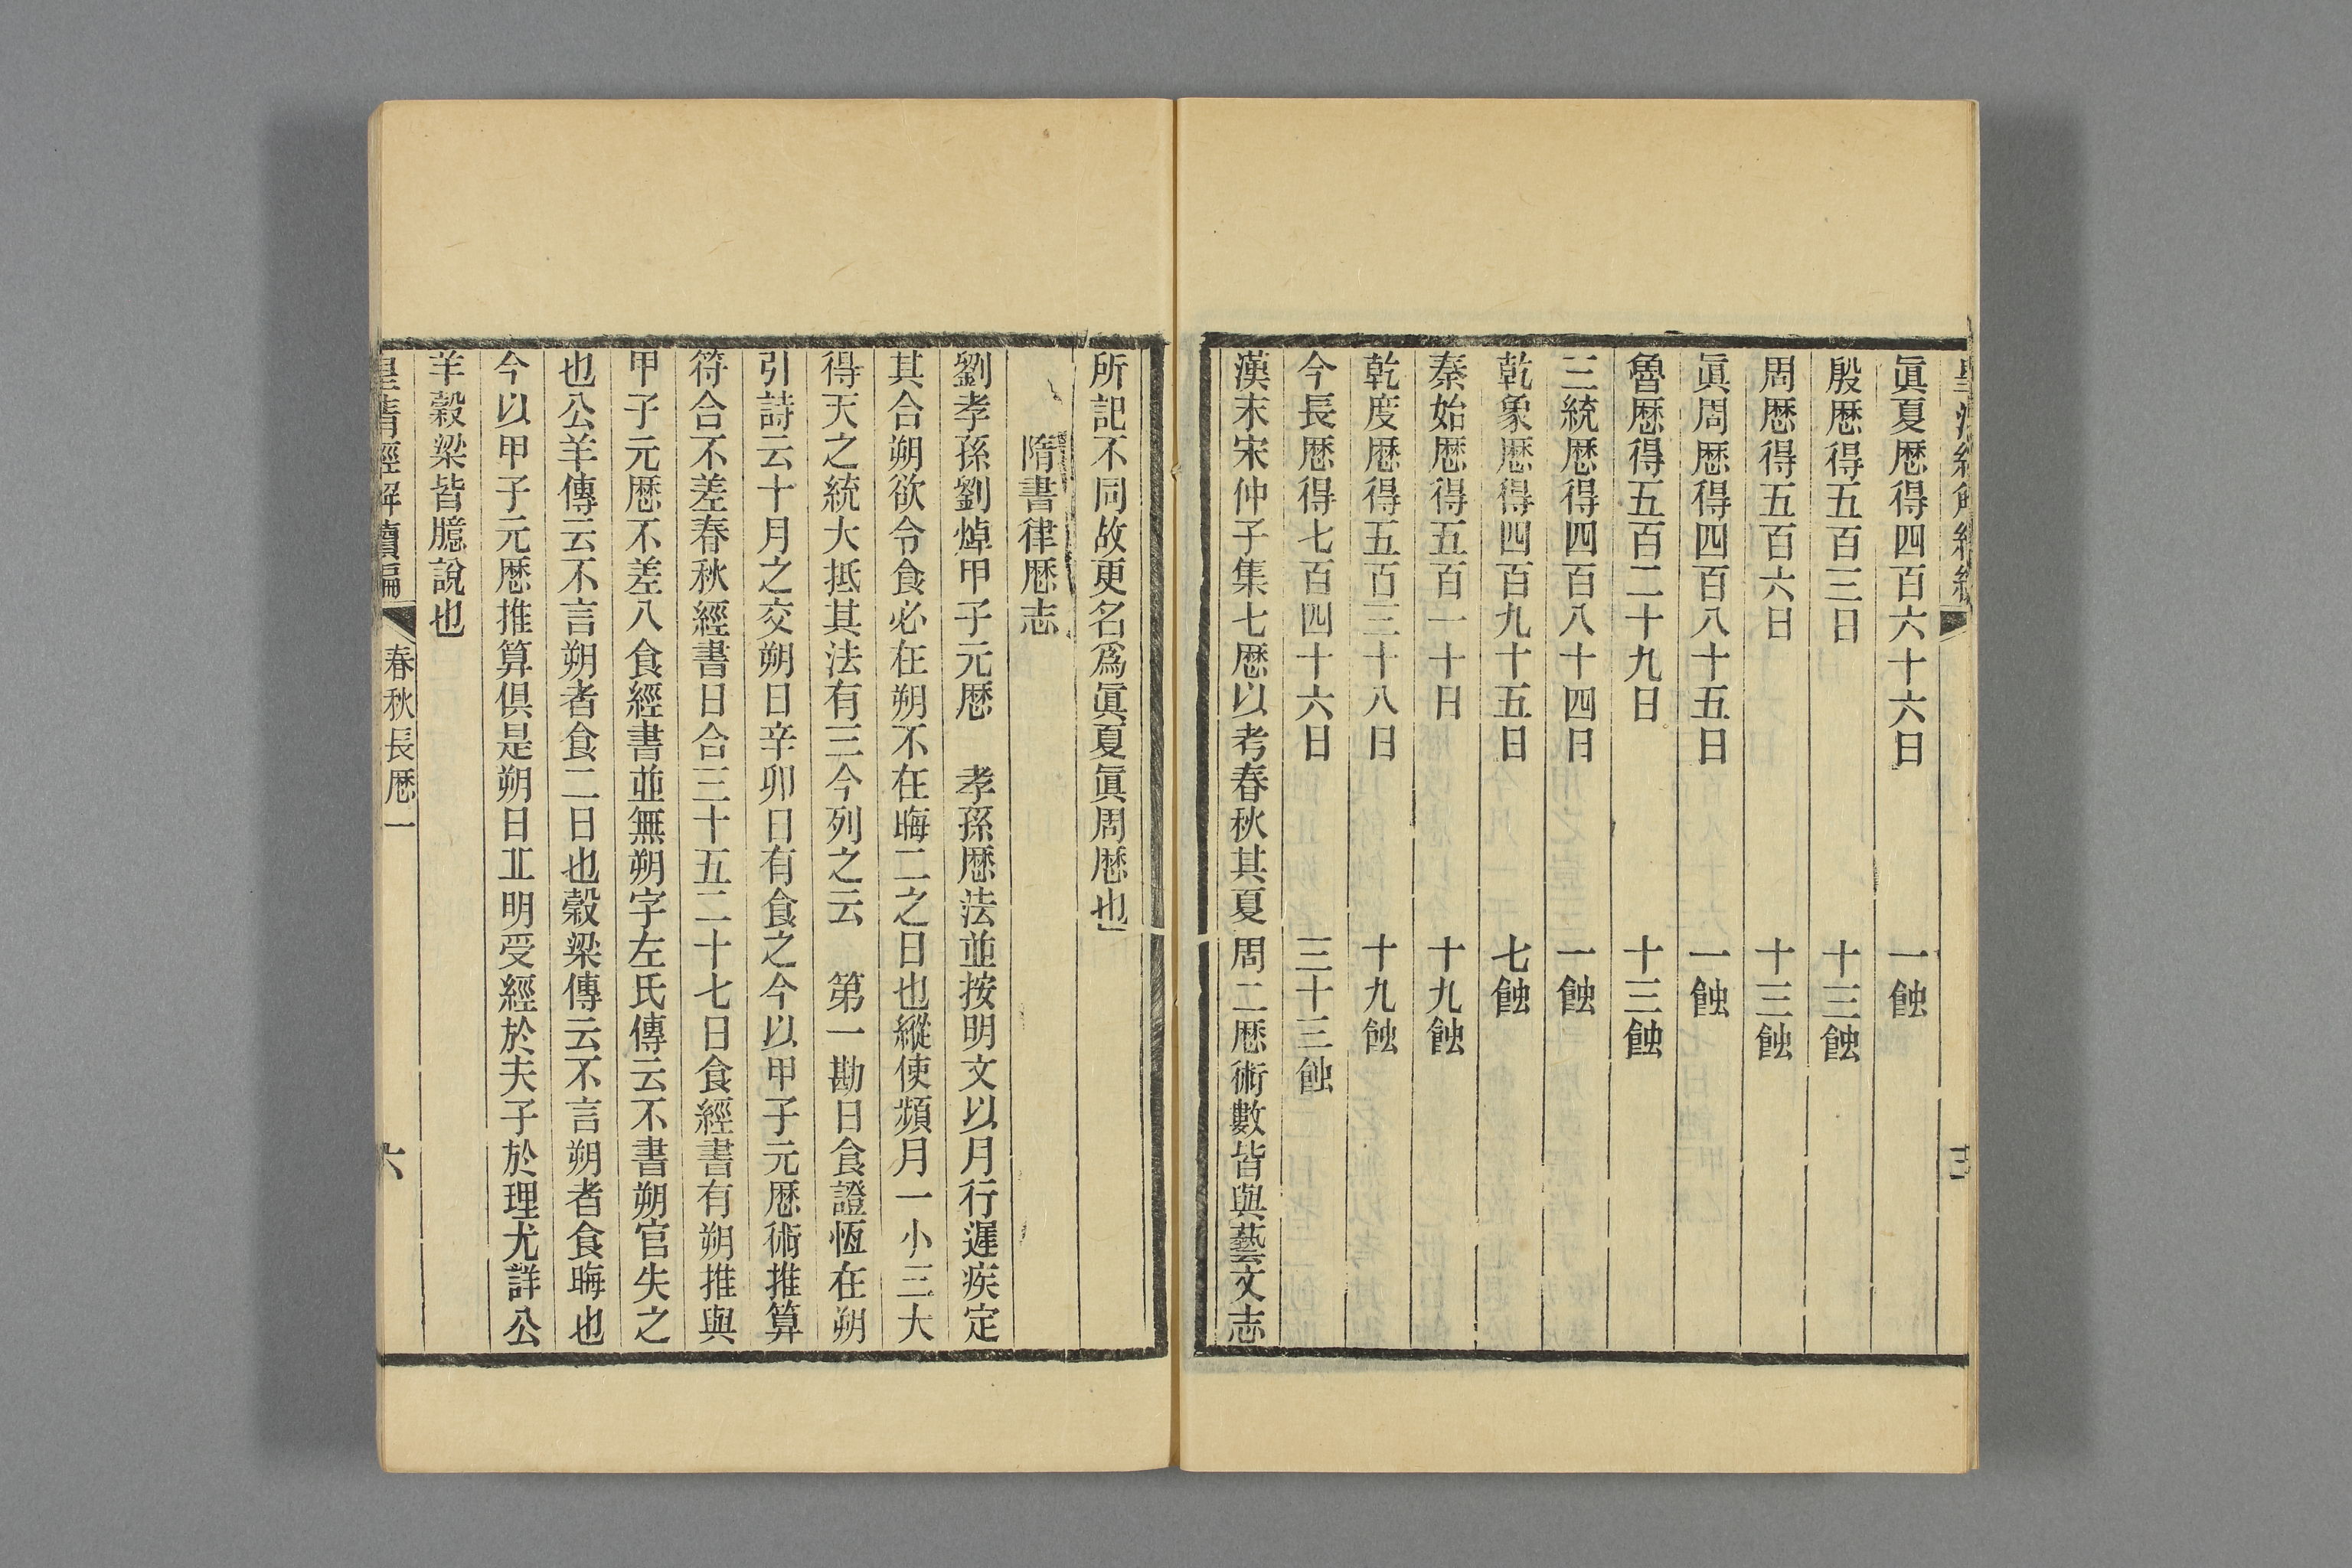 眞夏厯得四百六十六日　一蝕
殷厯得五百三日　十三蝕
周厯得五百六日　十三蝕
眞周厯得四百八十五日　一蝕
魯厯得五百二十九日　十三蝕
三統厯得四百八十四日　一蝕
乾象厯得四百九十五日　七蝕
秦始厯得五百一十日　十九蝕
乾度厯得五百三十八日　十九蝕
今長厯得七百四十六日　三十三蝕
漢末宋仲子集七厯以考春秋其夏周二厯術數皆與藝文志
所記不同故更名爲眞夏眞周厯也
隋書律厯志
劉孝孫劉焯甲子元厯　孝孫厯法並按明文以月行遲疾定
其合朔欲令食必在朔不在晦二之日也縱使頻月一小三大
得天之統大抵其法有三今列之云　第一勘日食證恆在朔
引詩云十月之交朔日辛卯日有食之今以甲子元厯術推算
符合不差春秋經書日合三十五二十七日食經書有朔推與
甲子元厯不差八食經書並無朔字左氏傳云不書朔官失之
也公羊傳云不言朔者食二日也穀梁傳云不言朔者食晦也
今以甲子元厯推算俱是朔日丘明受經於夫子於理尤詳公
羊穀梁皆臆說也
皇清經解續編　春秋長厯一　六